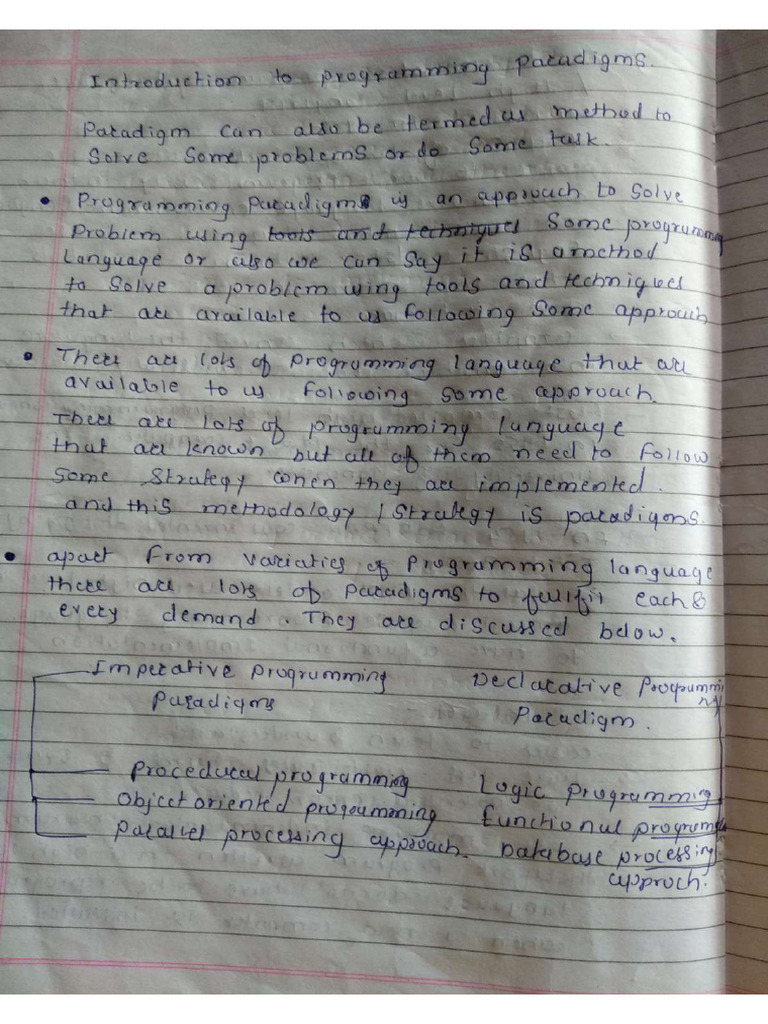 Introduction to programming paradigms.
Paradigm can also be termed as method to
solve some problems or do some task.
• Programming paradigm is an approach to solve
problem using tools and techniques some programming
language or also we can say it is a method
to solve a problem using tools and techniques
that are available to us following some approach
• There are lots of programming language that are
available to us following some approach.
There are lots of programming language
that are known but all of them need to follow
some strategy when they are implemented.
and this methodology / strategy is paradigms.
• apart from variaties of programming language
there are lots of paradigms to fulfil each &
every demand. They are discussed below.
Imperative programming Declarative Programming
Paradigms Paradigm.
Procedural programming Logic programming
Object oriented programming functional programming
Parallel processing approach. Database processing
approch.